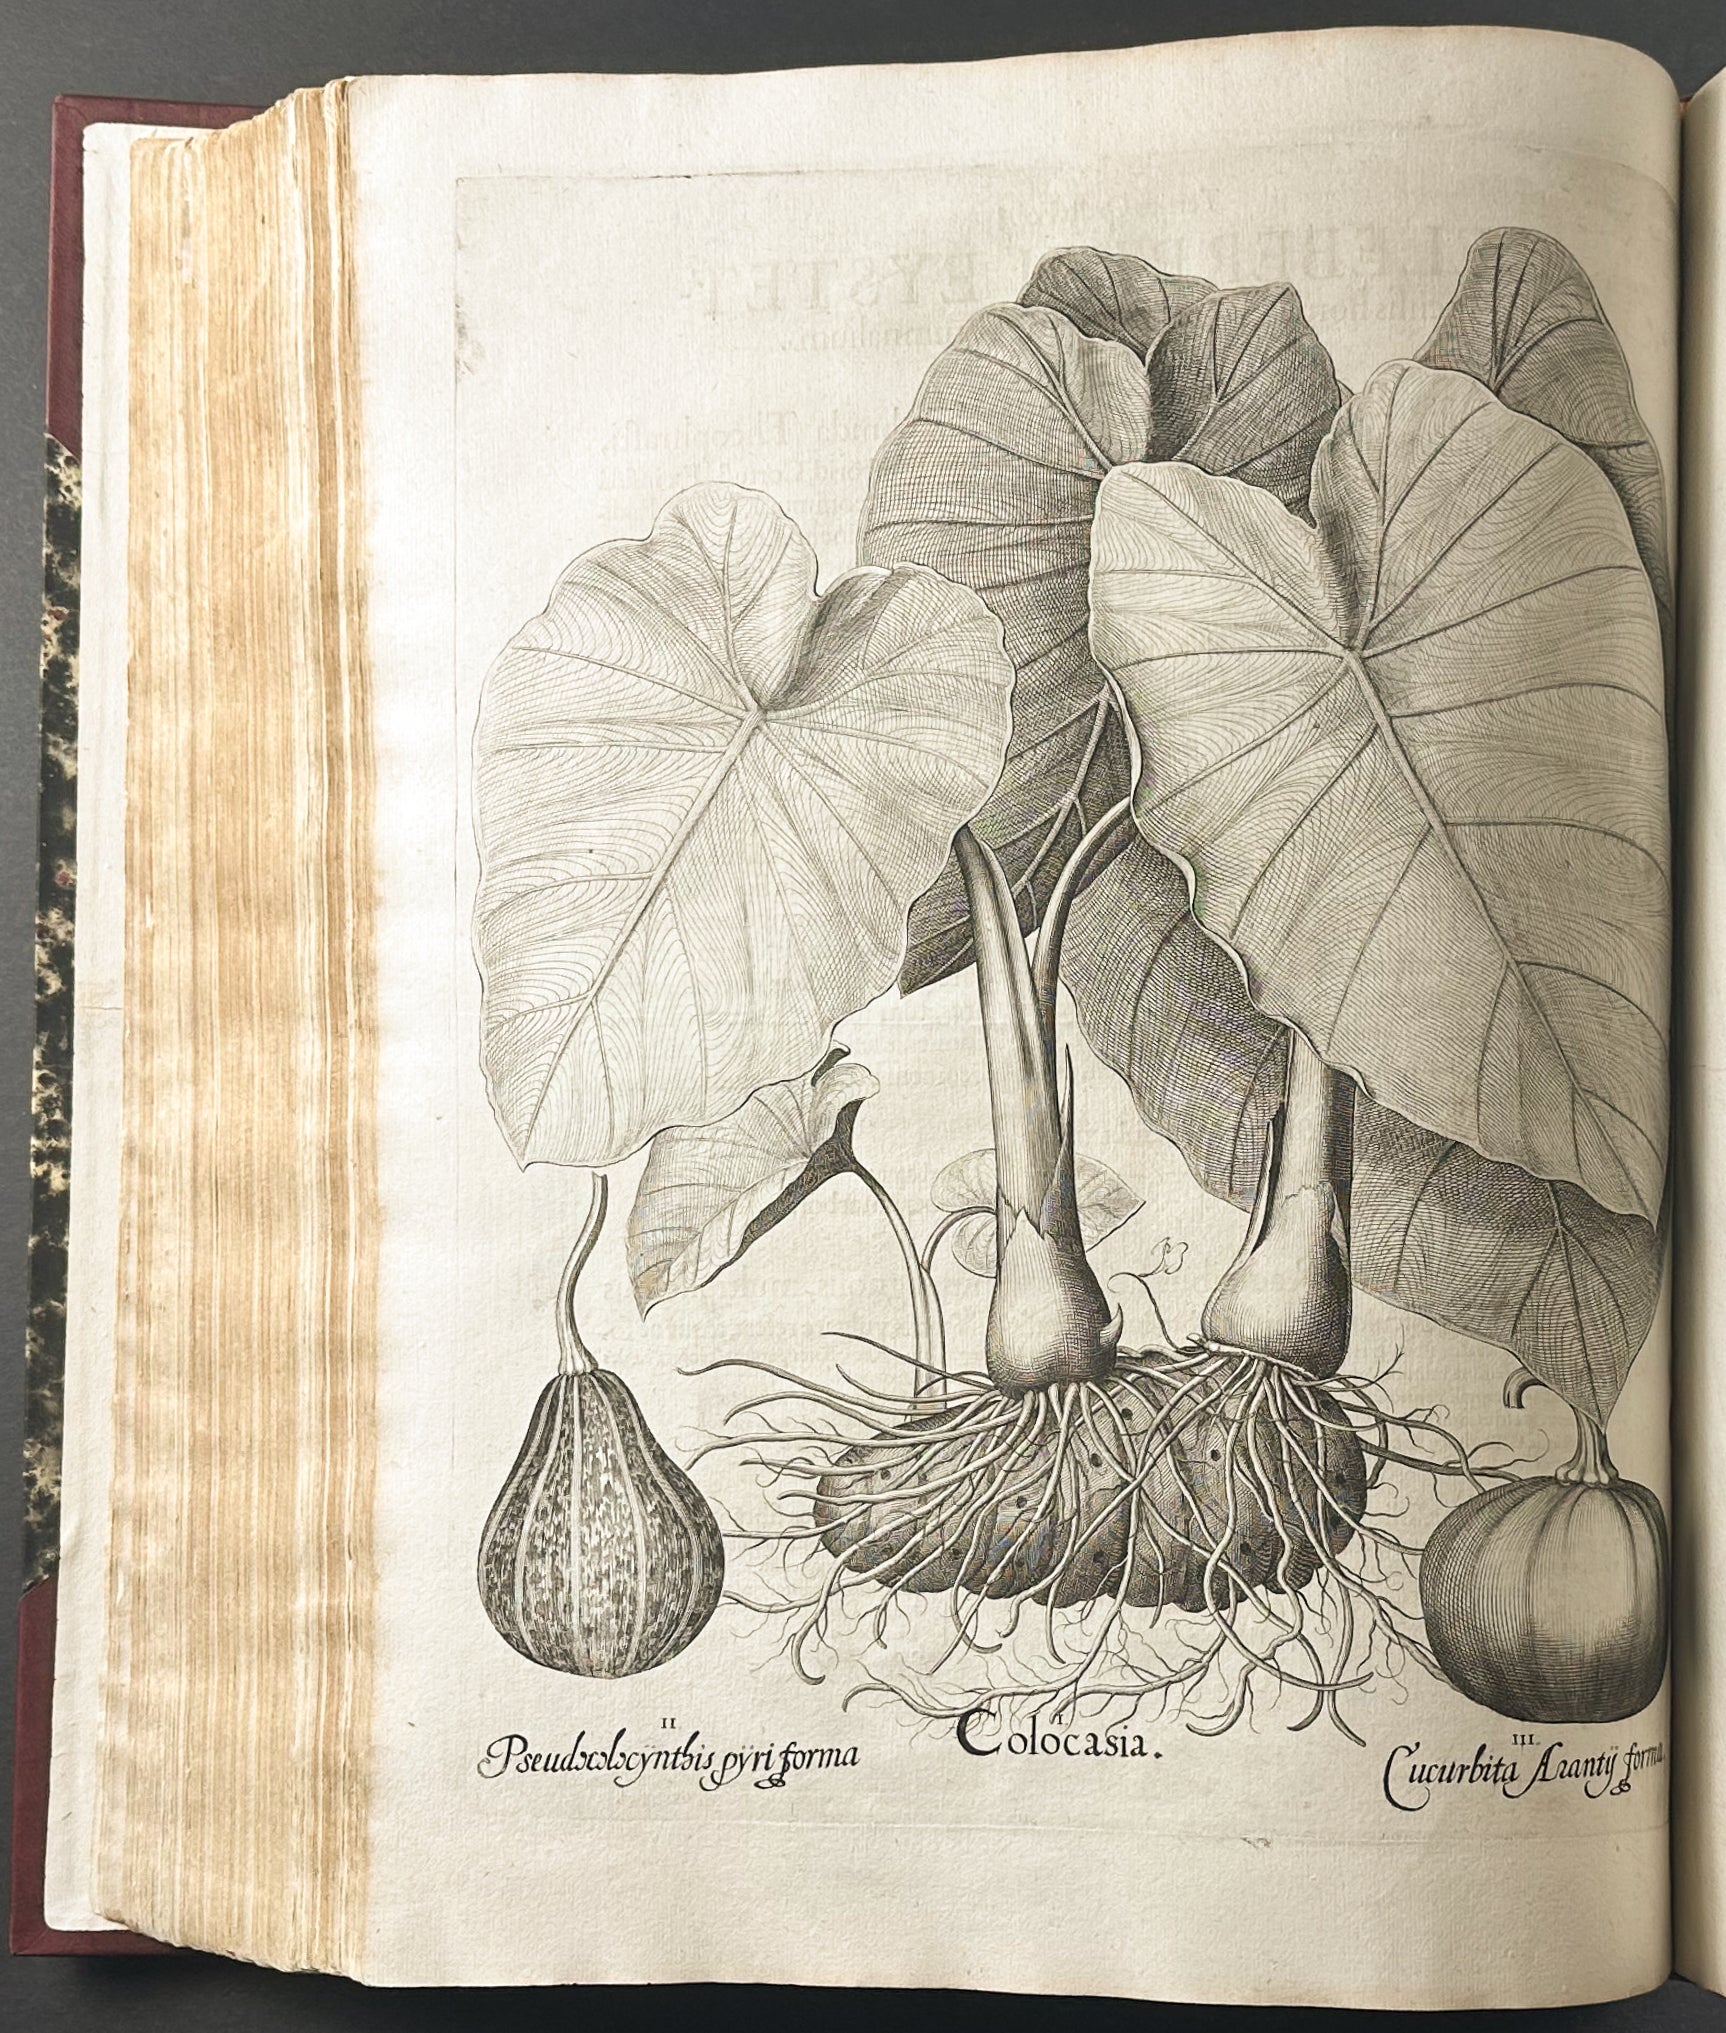 II
Pseudocolocÿnthis pÿri forma
I.
Colocasia.
III.
Cucurbita Arantÿ forma.